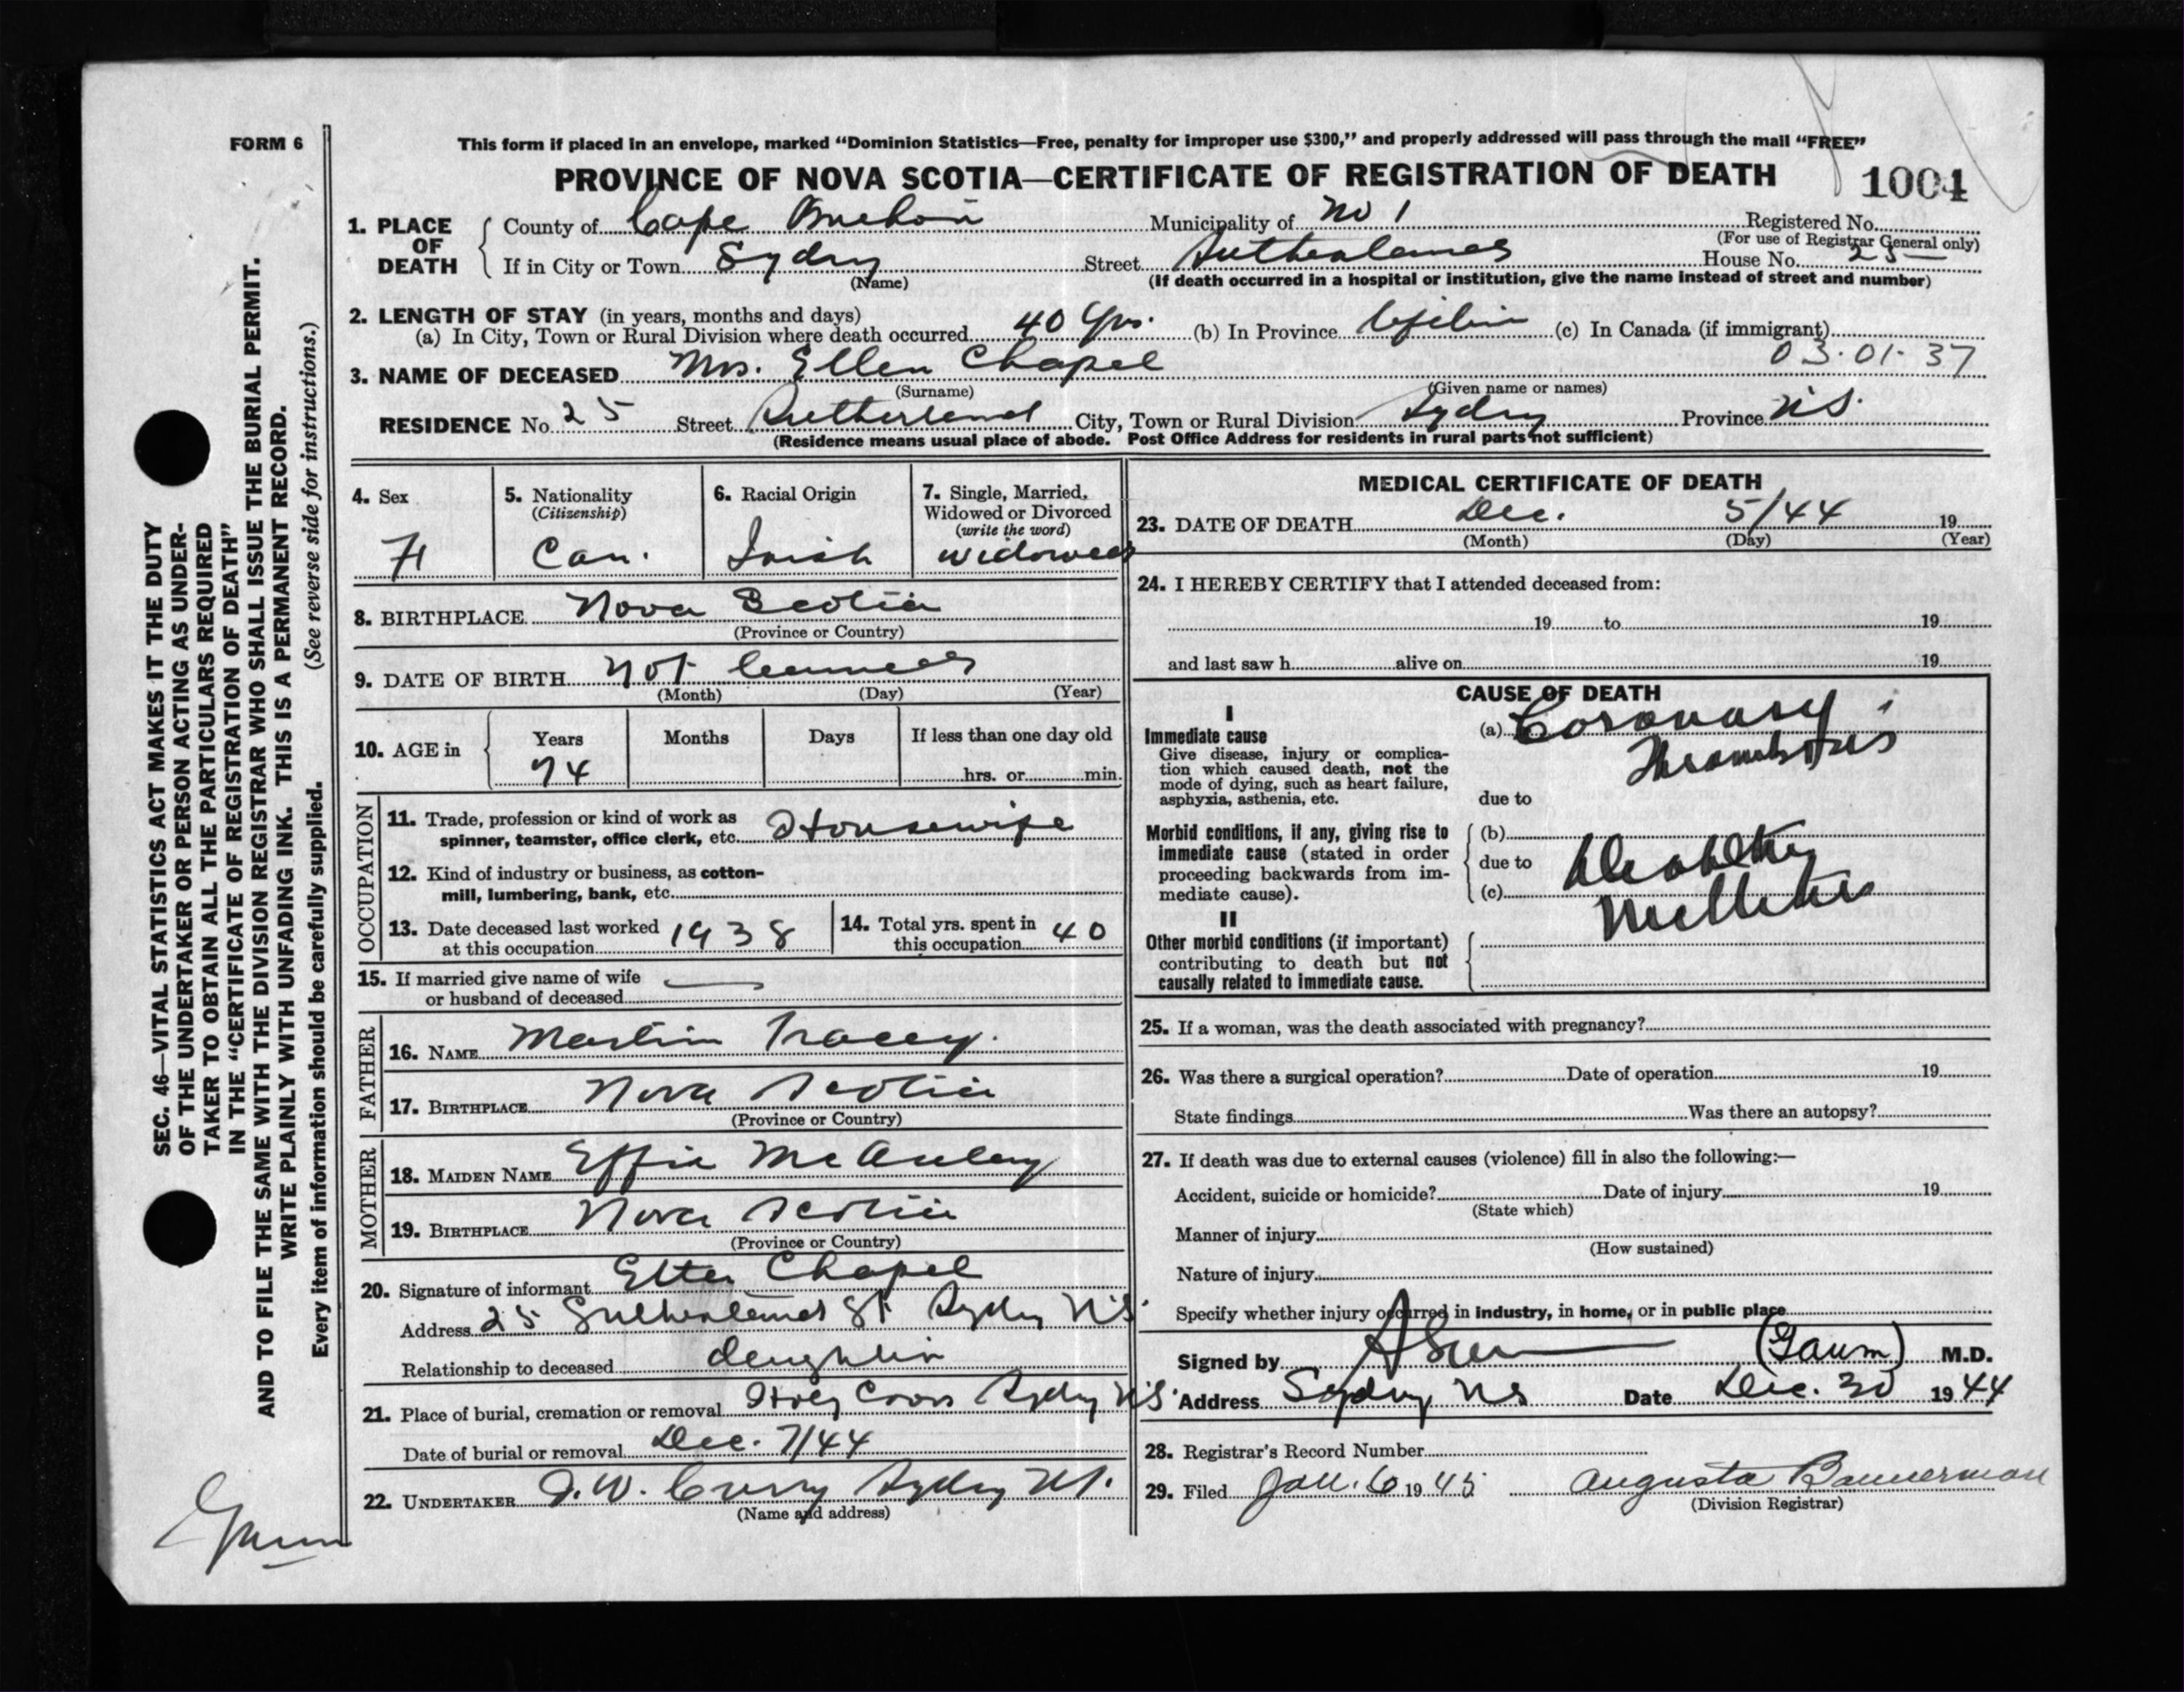 FORM 6
This form if placed in an envelope, marked “Dominion Statistics—Free, penalty for improper use $300,” and properly addressed will pass through the mail “FREE”
PROVINCE OF NOVA SCOTIA—CERTIFICATE OF REGISTRATION OF DEATH 1004
SEC. 46—VITAL STATISTICS ACT MAKES IT THE DUTY
OF THE UNDERTAKER OR PERSON ACTING AS UNDER-
TAKER TO OBTAIN ALL THE PARTICULARS REQUIRED
IN THE “CERTIFICATE OF REGISTRATION OF DEATH”
AND TO FILE THE SAME WITH THE DIVISION REGISTRAR WHO SHALL ISSUE THE BURIAL PERMIT.
WRITE PLAINLY WITH UNFADING INK. THIS IS A PERMANENT RECORD.
Every item of information should be carefully supplied. (See reverse side for instructions.)
1. PLACE OF DEATH County of Cape Breton Municipality of No 1 Registered No.
(For use of Registrar General only)
If in City or Town Sydney Street Sutherland House No. 25
(Name) (If death occurred in a hospital or institution, give the name instead of street and number)
2. LENGTH OF STAY (in years, months and days)
(a) In City, Town or Rural Division where death occurred 40 Yrs. (b) In Province Lifetime (c) In Canada (if immigrant)
03.01.37
3. NAME OF DECEASED Mrs. Ellen Chapel
(Surname) (Given name or names)
RESIDENCE No. 25 Street Sutherland City, Town or Rural Division Sydney Province N.S.
(Residence means usual place of abode. Post Office Address for residents in rural parts not sufficient)
4. Sex 5. Nationality 6. Racial Origin 7. Single, Married,
(Citizenship) Widowed or Divorced
(write the word)
F Can. Irish widowed
8. BIRTHPLACE Nova Scotia
(Province or Country)
9. DATE OF BIRTH Not
(Month) (Day) (Year)
10. AGE in Years Months Days If less than one day old
74 hrs. or min.
OCCUPATION
11. Trade, profession or kind of work as
spinner, teamster, office clerk, etc. Housewife
12. Kind of industry or business, as cotton-
mill, lumbering, bank, etc.
13. Date deceased last worked
at this occupation 1938
14. Total yrs. spent in
this occupation 40
15. If married give name of wife
or husband of deceased
FATHER
16. NAME Martin Tracey.
17. BIRTHPLACE Nova Scotia
(Province or Country)
MOTHER
18. MAIDEN NAME Effie McAuley
19. BIRTHPLACE Nova Scotia
(Province or Country)
20. Signature of informant Etta Chapel
Address 25 Sutherland St Sydney N.S.
Relationship to deceased daughter
21. Place of burial, cremation or removal Holy Cross Sydney N.S.
Date of burial or removal Dec. 7/44
22. UNDERTAKER W. Curry Sydney N.S.
(Name and address)
MEDICAL CERTIFICATE OF DEATH
23. DATE OF DEATH Dec. 5/44 19
(Month) (Day) (Year)
24. I HEREBY CERTIFY that I attended deceased from:
19 to 19
and last saw h alive on 19
CAUSE OF DEATH
I
Immediate cause
Give disease, injury or complica-
tion which caused death, not the
mode of dying, such as heart failure,
asphyxia, asthenia, etc.
(a) Coronary
Thrombosis
due to
Morbid conditions, if any, giving rise to
immediate cause (stated in order
proceeding backwards from im-
mediate cause).
(b)
due to Diabetes
(c) Mellitus
II
Other morbid conditions (if important)
contributing to death but not
causally related to immediate cause.
25. If a woman, was the death associated with pregnancy?
26. Was there a surgical operation? Date of operation 19
State findings Was there an autopsy?
27. If death was due to external causes (violence) fill in also the following:—
Accident, suicide or homicide? Date of injury 19
(State which)
Manner of injury
(How sustained)
Nature of injury
Specify whether injury occurred in industry, in home, or in public place
Signed by (Gaum) M.D.
Address Sydney NS Date Dec. 30 1944
28. Registrar's Record Number
29. Filed Jan. 6 1945 Augusta Bannerman
(Division Registrar)
Gaum